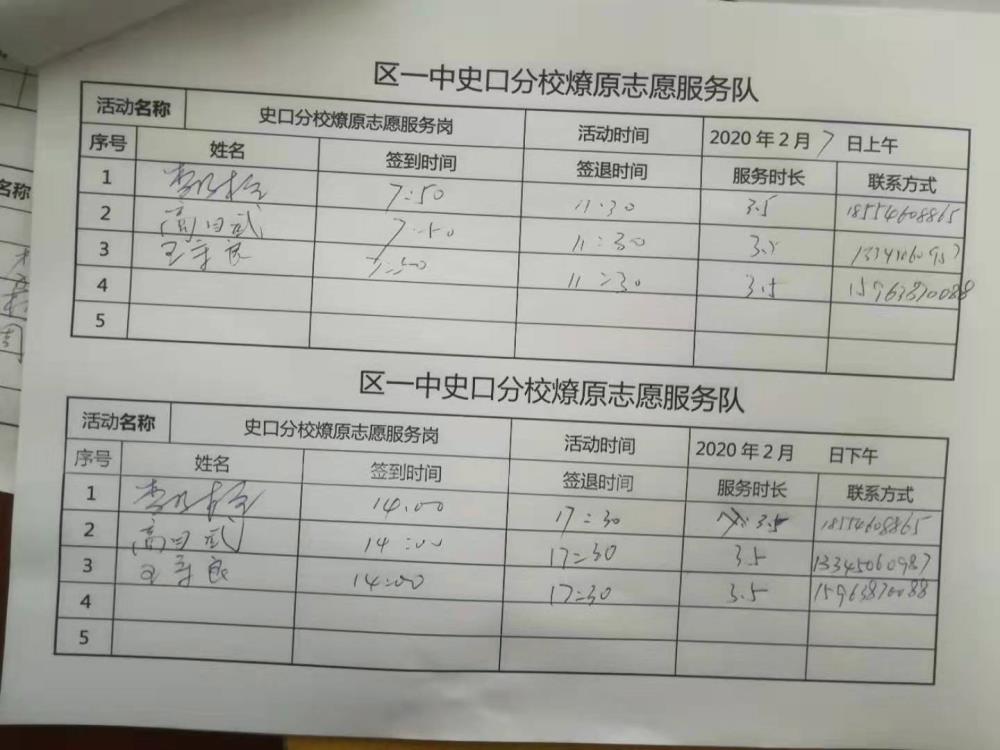 区一中史口分校燎原志愿服务队
活动名称 史口分校燎原志愿服务岗 活动时间 2020年2月7日上午
序号 姓名 签到时间 签退时间 服务时长 联系方式
1 7:50 11:30 3.5 18554608865
2 高日武 7:50 11:30 3.5
3 王守良 7:50 11:30 3.5 15963870088
4
5
区一中史口分校燎原志愿服务队
活动名称 史口分校燎原志愿服务岗 活动时间 2020年2月 日下午
序号 姓名 签到时间 签退时间 服务时长 联系方式
1 14:00 17:30 3.5 18554608865
2 高日武 14:00 17:30 3.5 13345060987
3 王守良 14:00 17:30 3.5 15963870088
4
5
名称